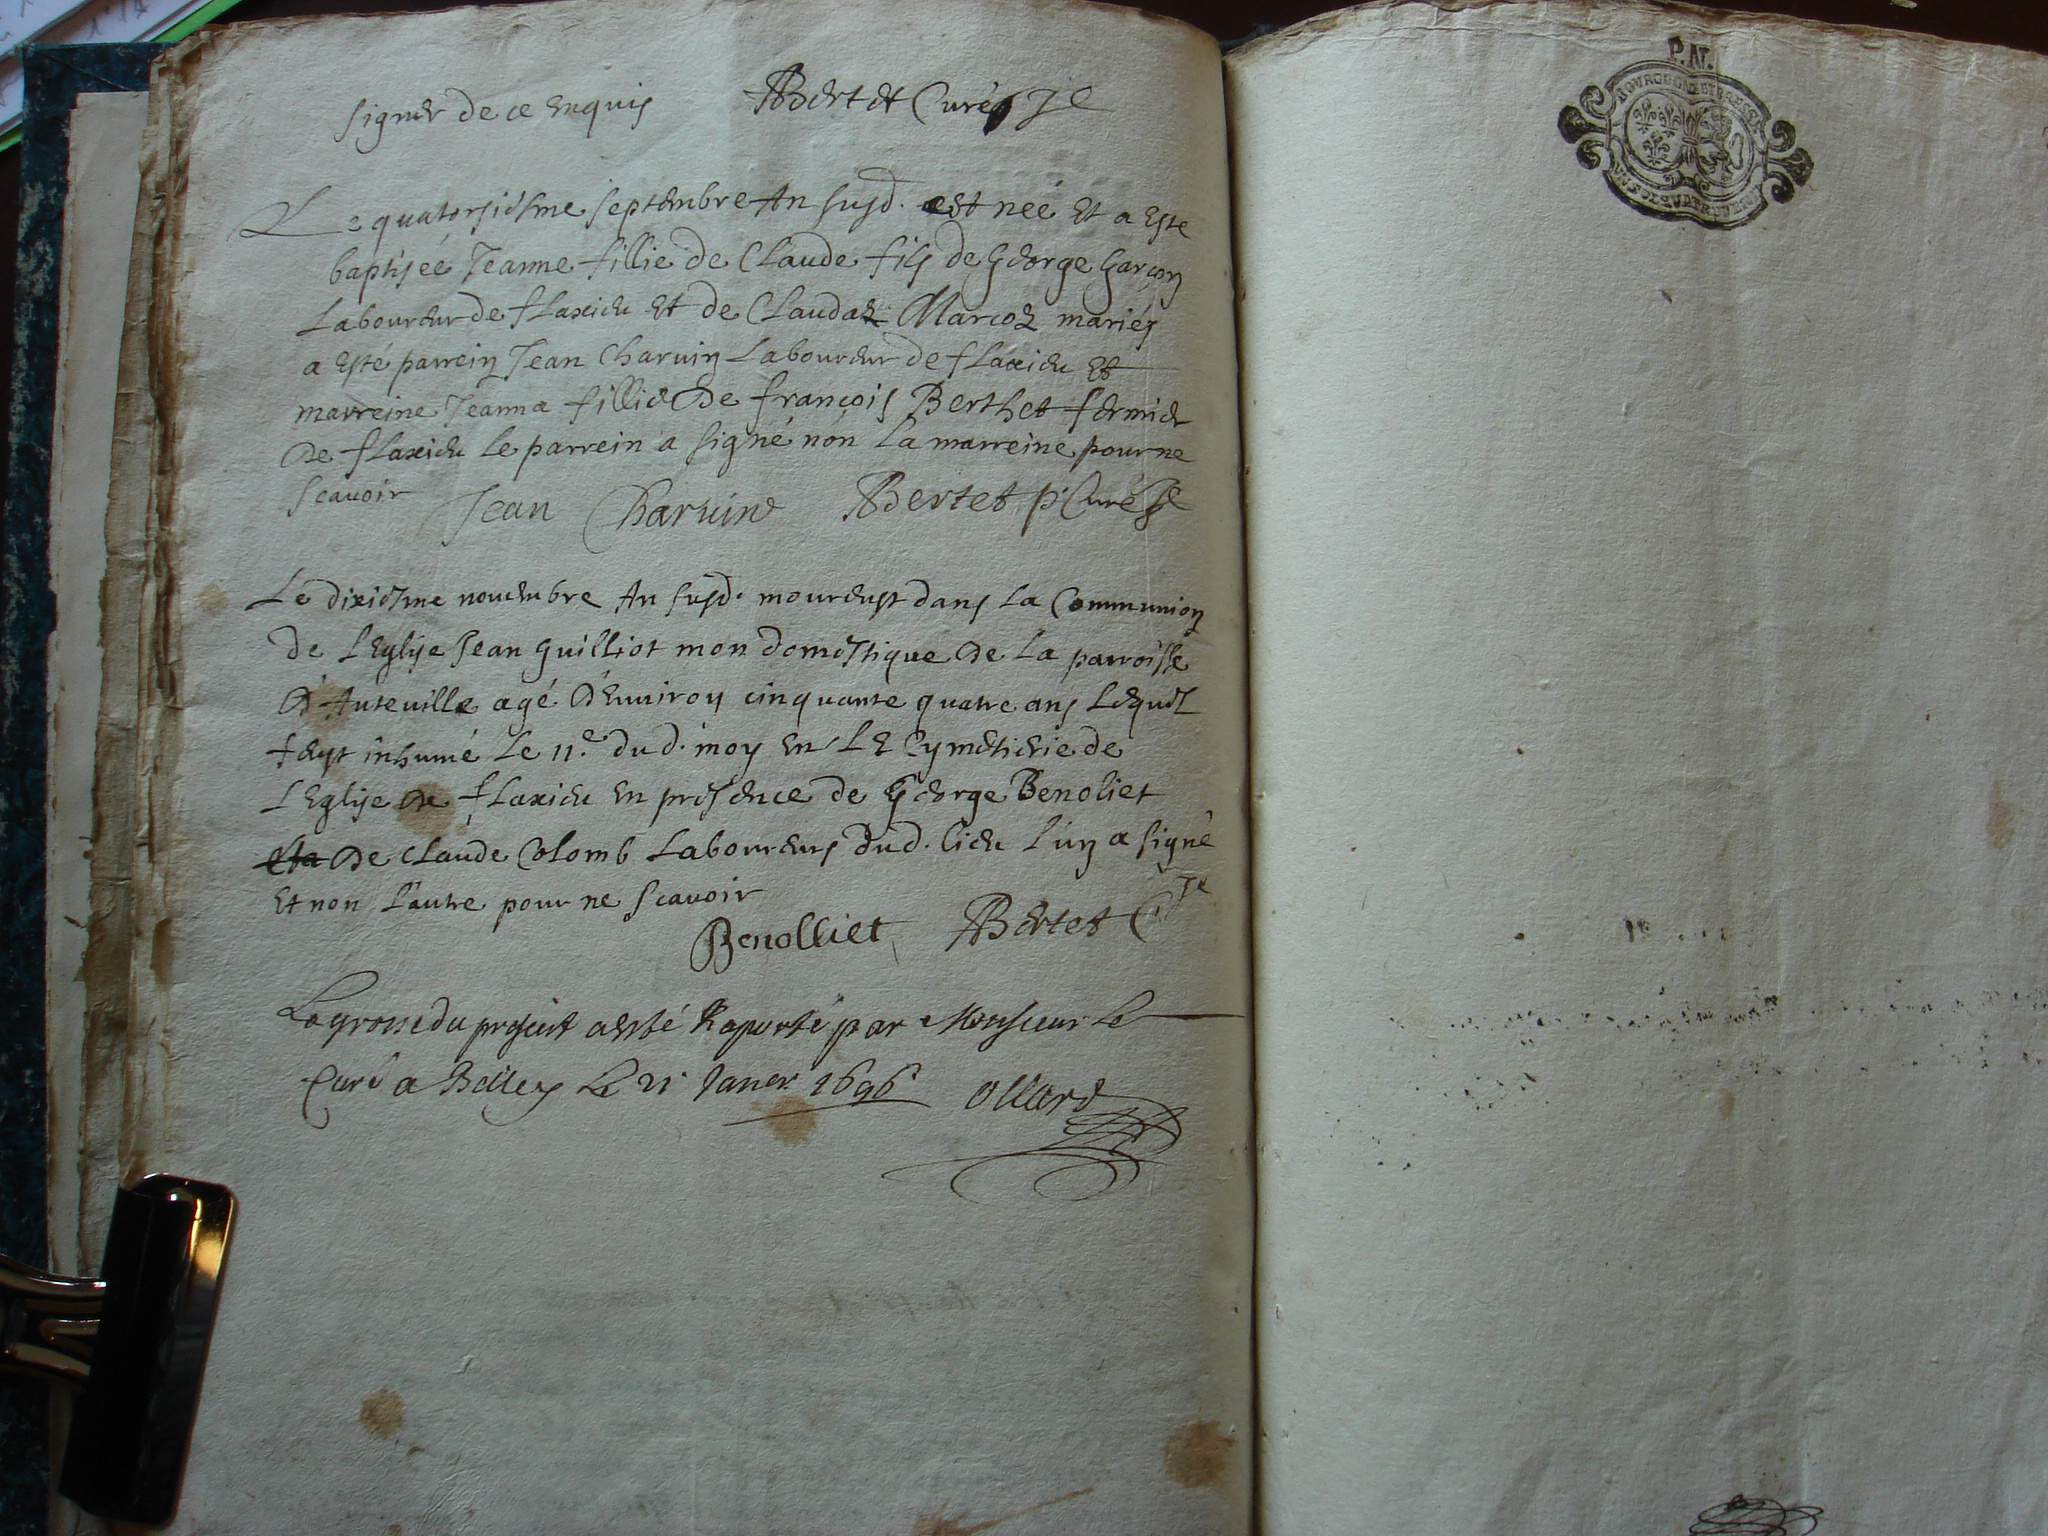 signer de ce enquis Bertet Curé
Le quatorsiesme septembre An susd. est neé et a este
baptiseé Jeanne fillie de Claude fils de George Garçon
Laboureur de flaxieu et de Claudaz Marcoz mariés
a esté parrein Jean Charvin Laboureur de flaxieu et
marreine Jeanna fillie de françois Berthet fermier
de flaxieu le parrein a signé non la marreine pour ne
scavoir Jean Charvin Bertet p Curé
Le dixiesme novembre An susd. moureust dans la Communion
de L'Eglise Jean Guilliot mon domestique de la parroisse
d'Auteville agé d'environ cinquante quatre ans Lequel
feust inhumé Le 11.e dud. moy en Le Cymetierie de
L'Eglise de flaxieu en presence de George Benoliet
de claude Colomb Laboureurs dud. lieu L'un a signé
Et non L'autre pour ne scavoir
Benolliet Bertet C
La grosse du present a esté Raporté par Monsieur Le
Curé a Belley Le 21 Janer 1696 Ollard
P.N.